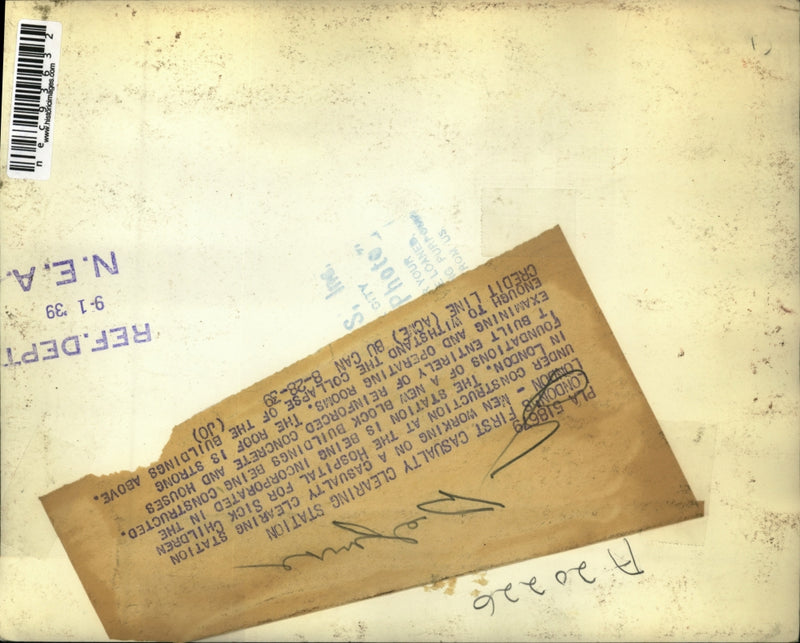 PLA 518699
LONDON'S FIRST CASUALTY CLEARING STATION
LONDON - MEN WORKING ON THE CASUALTY CLEARING STATION
UNDER CONSTRUCTION AT A HOSPITAL FOR SICK CHILDREN
IN LONDON. THE STATION IS BEING INCORPORATED IN THE
FOUNDATIONS OF A NEW BLOCK BUILDINGS BEING CONSTRUCTED.
T BUILT ENTIRELY OF REINFORCED CONCRETE AND HOUSES
EXAMINING AND OPERATING ROOMS. THE ROOF IS STRONG
ENOUGH TO WITHSTAND THE COLLAPSE OF THE BUILDINGS ABOVE.
CREDIT LINE (ACME) BU CAN 8-28-39 (JO)
Defense
A 20226
REF. DEPT
9-1 '39
N.E.A.
S, Inc.
CITY
"Photo"
YOUR
LOANED
PURPO
FROM US
nec93632
www.historicimages.com